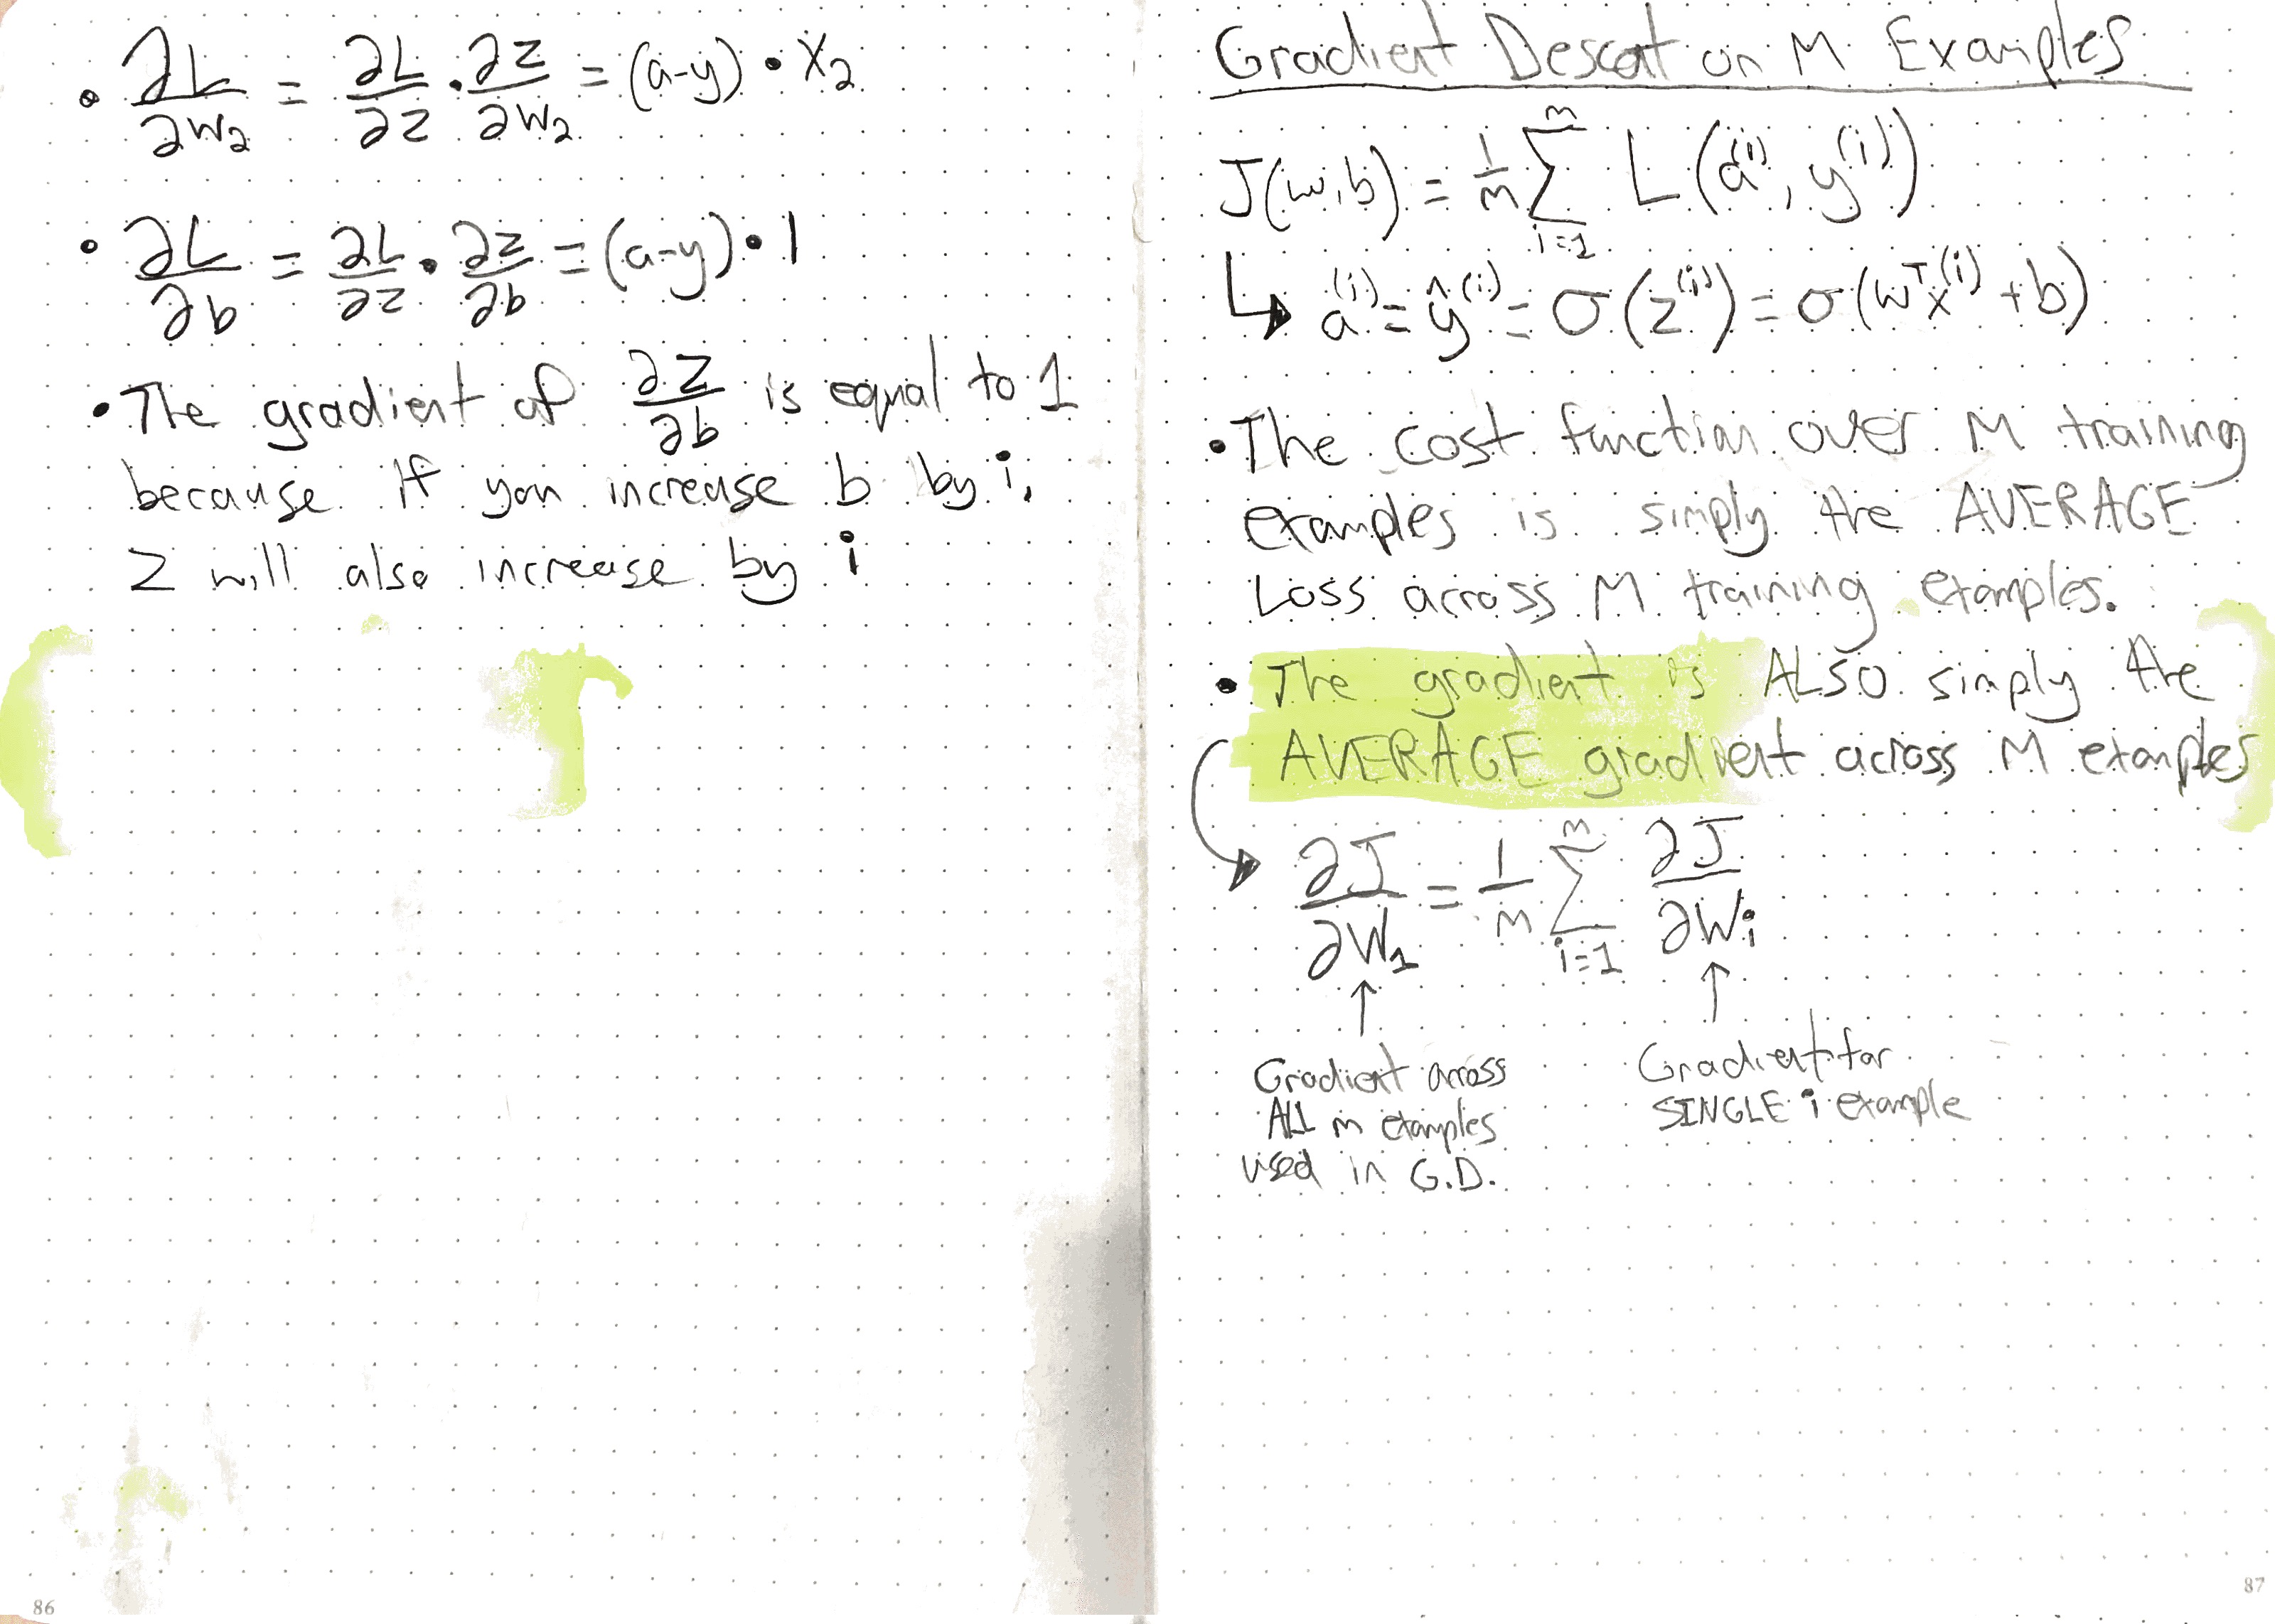 • ∂L/∂w₂ = ∂L/∂z • ∂z/∂w₂ = (a-y) • x₂
• ∂L/∂b = ∂L/∂z • ∂z/∂b = (a-y) • 1
• The gradient of ∂z/∂b is equal to 1
because if you increase b by i,
z will also increase by i
86
Gradient Descent on M Examples
J(w,b) = 1/m ∑ᵢ₌₁ᵐ L(a⁽ⁱ⁾, y⁽ⁱ⁾)
↳ a⁽ⁱ⁾ = ŷ⁽ⁱ⁾ = σ(z⁽ⁱ⁾) = σ(wᵀx⁽ⁱ⁾ + b)
• The cost function over M training
examples is simply the AVERAGE
Loss across M training examples.
• The gradient is ALSO simply the
AVERAGE gradient across M examples
∂J/∂W₁ = 1/m ∑ᵢ₌₁ᵐ ∂J/∂Wᵢ
Gradient across
ALL m examples
used in G.D.
Gradient for
SINGLE i example
87